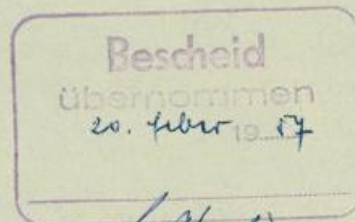 Bescheid
übernommen
20. Feber 1957